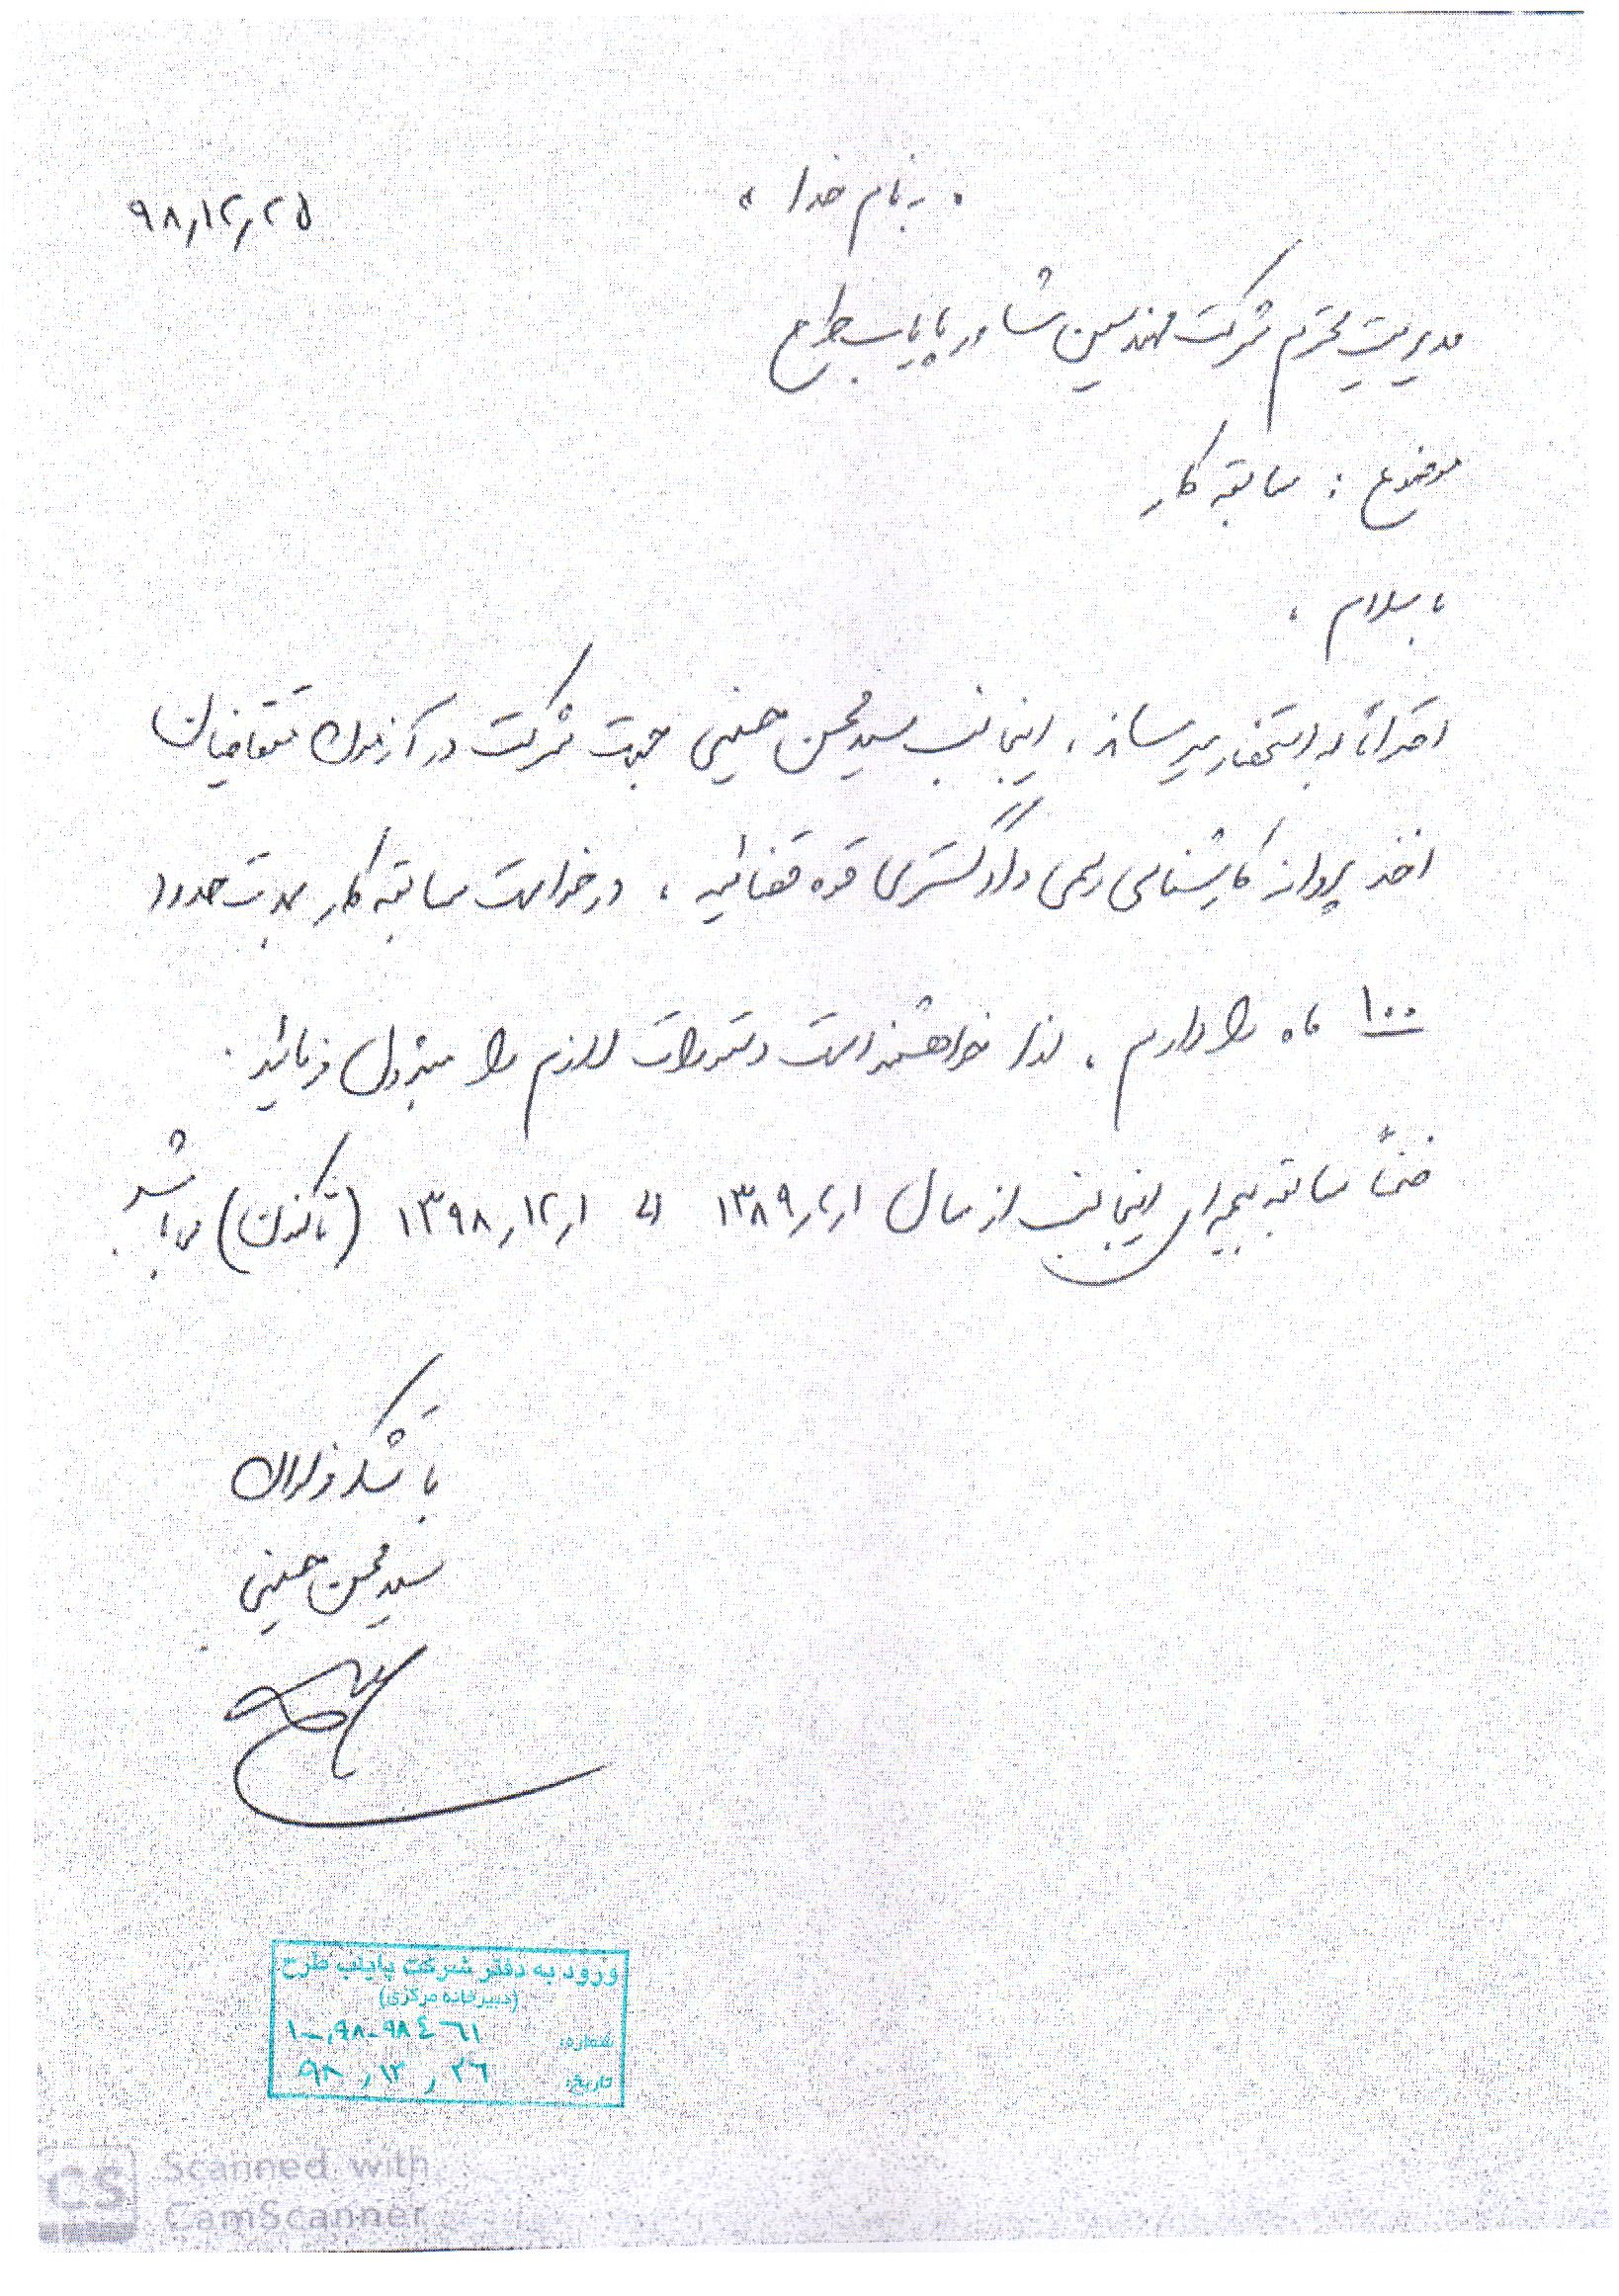 « به نام خدا »
۹۸٫۱۲٫۲۵
مدیریت محترم شرکت مهندسین مشاور پایاب طرح
موضوع : سابقه کار
با سلام ،
احتراماً به استحضار میرساند ، اینجانب سید محسن حسینی جهت شرکت در آزمون متقاضیان
اخذ پروانه کارشناسی رسمی دادگستری قوه قضائیه ، درخواست سابقه کار بمدت حدود
۱۰۰ ماه را دارم ، لذا خواهشمند است دستورات لازم را مبذول فرمائید .
ضمناً سابقه بیمه ای اینجانب از سال ۱۳۸۹ الی ۱۳۹۸٫۱۲٫۱ (تاکنون) می باشد .
با تشکر فراوان
سید محسن حسینی
ورود به دفتر شرکت پایاب طرح
(دبیرخانه مرکزی)
شماره: ۱-۹۸-۹۸۴۶۱
تاریخ: ۹۸٫۱۲٫۲۶
CS Scanned with
CamScanner